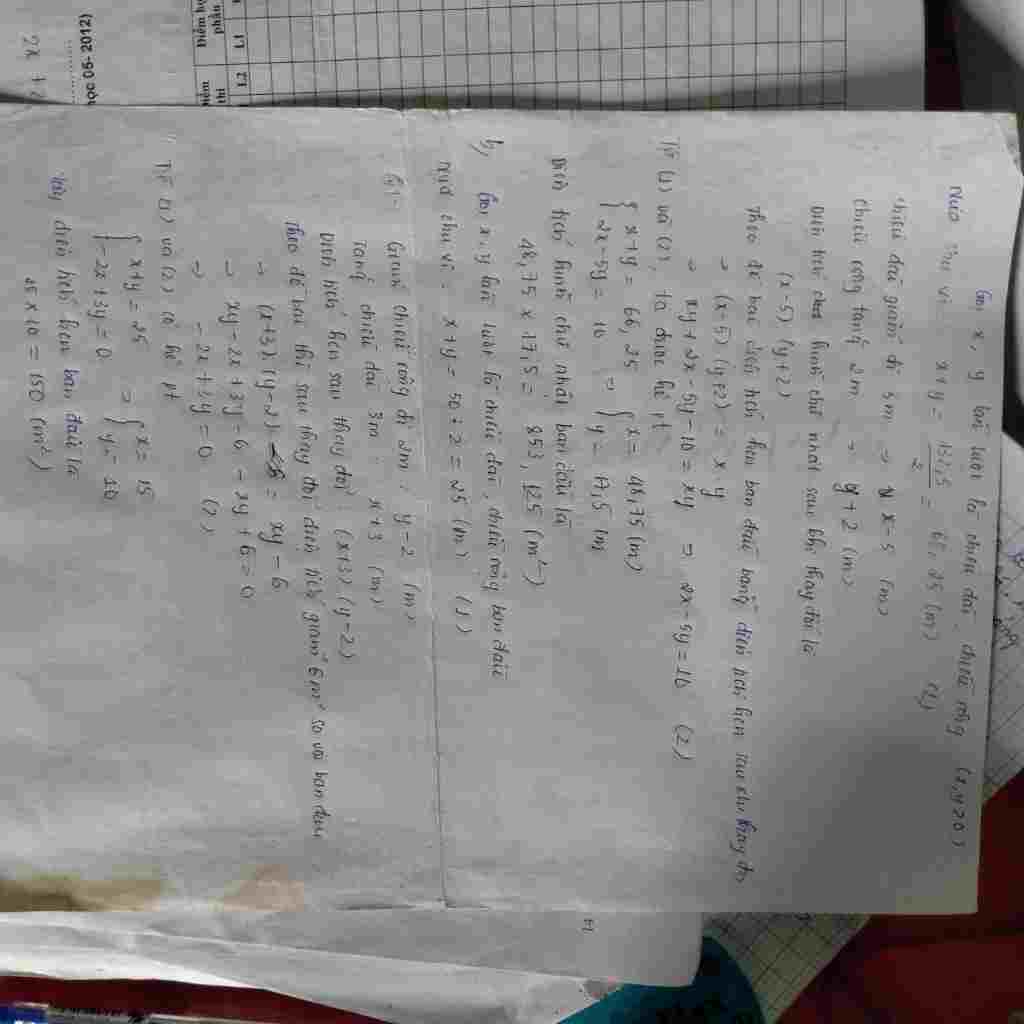 Gọi x, y lần lượt là chiều dài, chiều rộng (x, y > 0)
Nửa chu vi x+y = 132,5 / 2 = 66,25 (m) (1)
chiều dài giảm đi 5m → x-5 (m)
chiều rộng tăng 2m → y+2 (m)
Diện tích hình chữ nhật sau khi thay đổi là
(x-5)(y+2)
Theo đề bài diện tích ban đầu bằng diện tích sau khi thay đổi
→ (x-5)(y+2) = x.y
→ xy+2x-5y-10 = xy → 2x-5y=10 (2)
Từ (1) và (2), ta được hệ pt
{ x+y = 66,25
2x-5y = 10 → { x = 48,75 (m)
y = 17,5 (m
Diện tích hình chữ nhật ban đầu là
48,75 x 17,5 = 853,125 (m²)
b, Gọi x, y lần lượt là chiều dài, chiều rộng ban đầu
nửa chu vi : x+y = 50:2 = 25 (m) (1)
Giảm chiều rộng đi 2m : y-2 (m)
Tăng chiều dài 3m : x+3 (m)
Diện tích sau thay đổi : (x+3)(y-2)
Theo đề bài thì sau thay đổi diện tích giảm 6m² so với ban đầu
→ (x+3)(y-2) = xy-6
→ xy-2x+3y-6-xy+6=0
→ -2x+3y=0 (2)
Từ (1) và (2) có hệ pt
{ x+y = 25
-2x+3y=0 → { x= 15
y= 10
Vậy diện tích ban đầu là
15x10 = 150 (m²)
học 05- 2012)
Điểm
phần
L1
L2
thi
2x